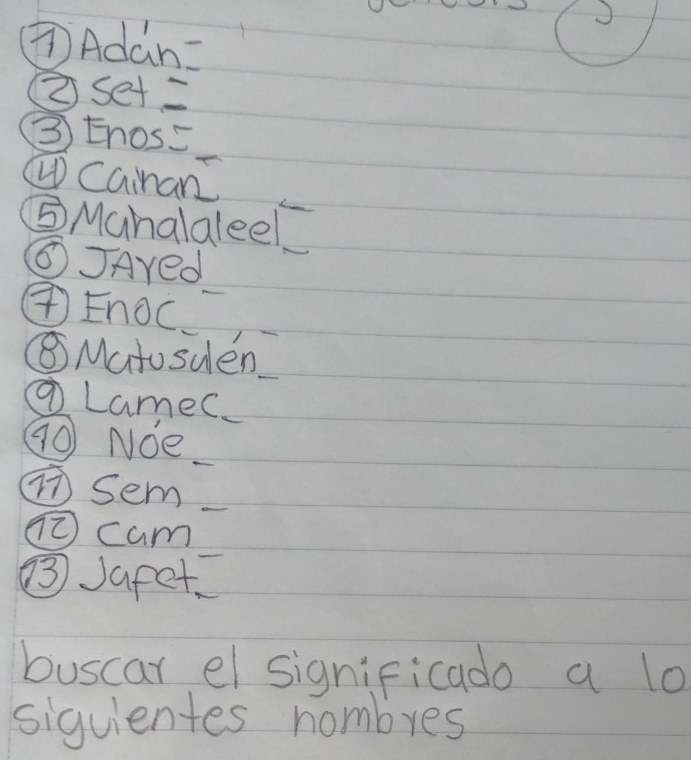 ① Adán =
② Set =
③ Enos =
④ Cainan =
⑤ Mahalaleel =
⑥ JAred
⑦ Enoc =
⑧ Matusalén =
⑨ Lamec
⑩ Nóe
⑪ Sem
⑫ cam
⑬ Jafet =
buscar el significado a lo
siguientes nombres